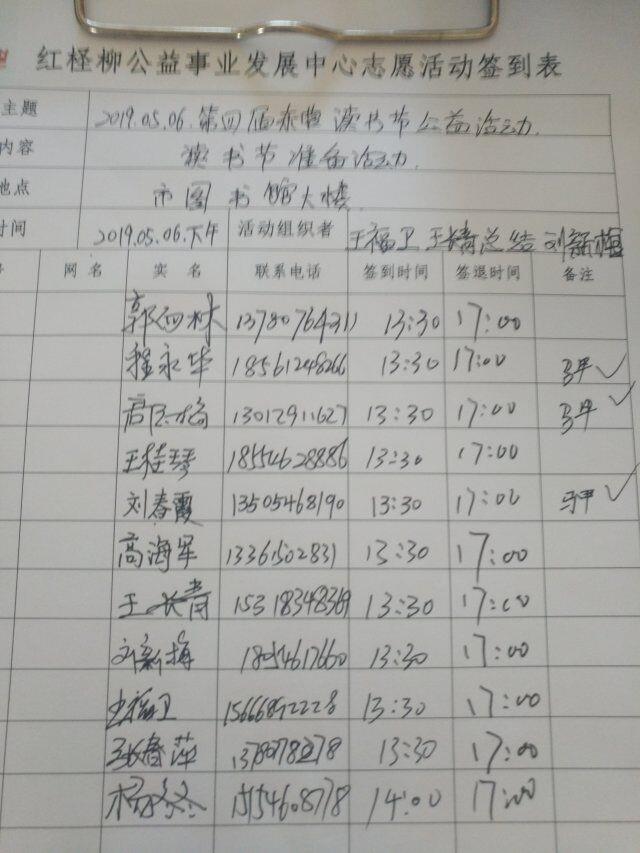 红柽柳公益事业发展中心志愿活动签到表
主题 2019.05.06.第四届东营读书节公益活动.
内容 读书节准备活动.
地点 市图书馆大楼
时间 2019.05.06.下午 活动组织者 王福卫 王长青总结 刘新梅
网名 实名 联系电话 签到时间 签退时间 备注
13780764311 13:30 17:00
程永华 18561248266 13:30 17:00 马甲 ✓
13012911627 13:30 17:00 马甲 ✓
王桂琴 18554628886 13:30 17:00
刘春霞 13505468190 13:30 17:00 马甲 ✓
高海军 13361502831 13:30 17:00
王长青 15318348369 13:30 17:00
刘新梅 18054617660 13:30 17:00
王福卫 15666892228 13:30 17:00
张春萍 13:30 17:00
15154608778 14:00 17:00